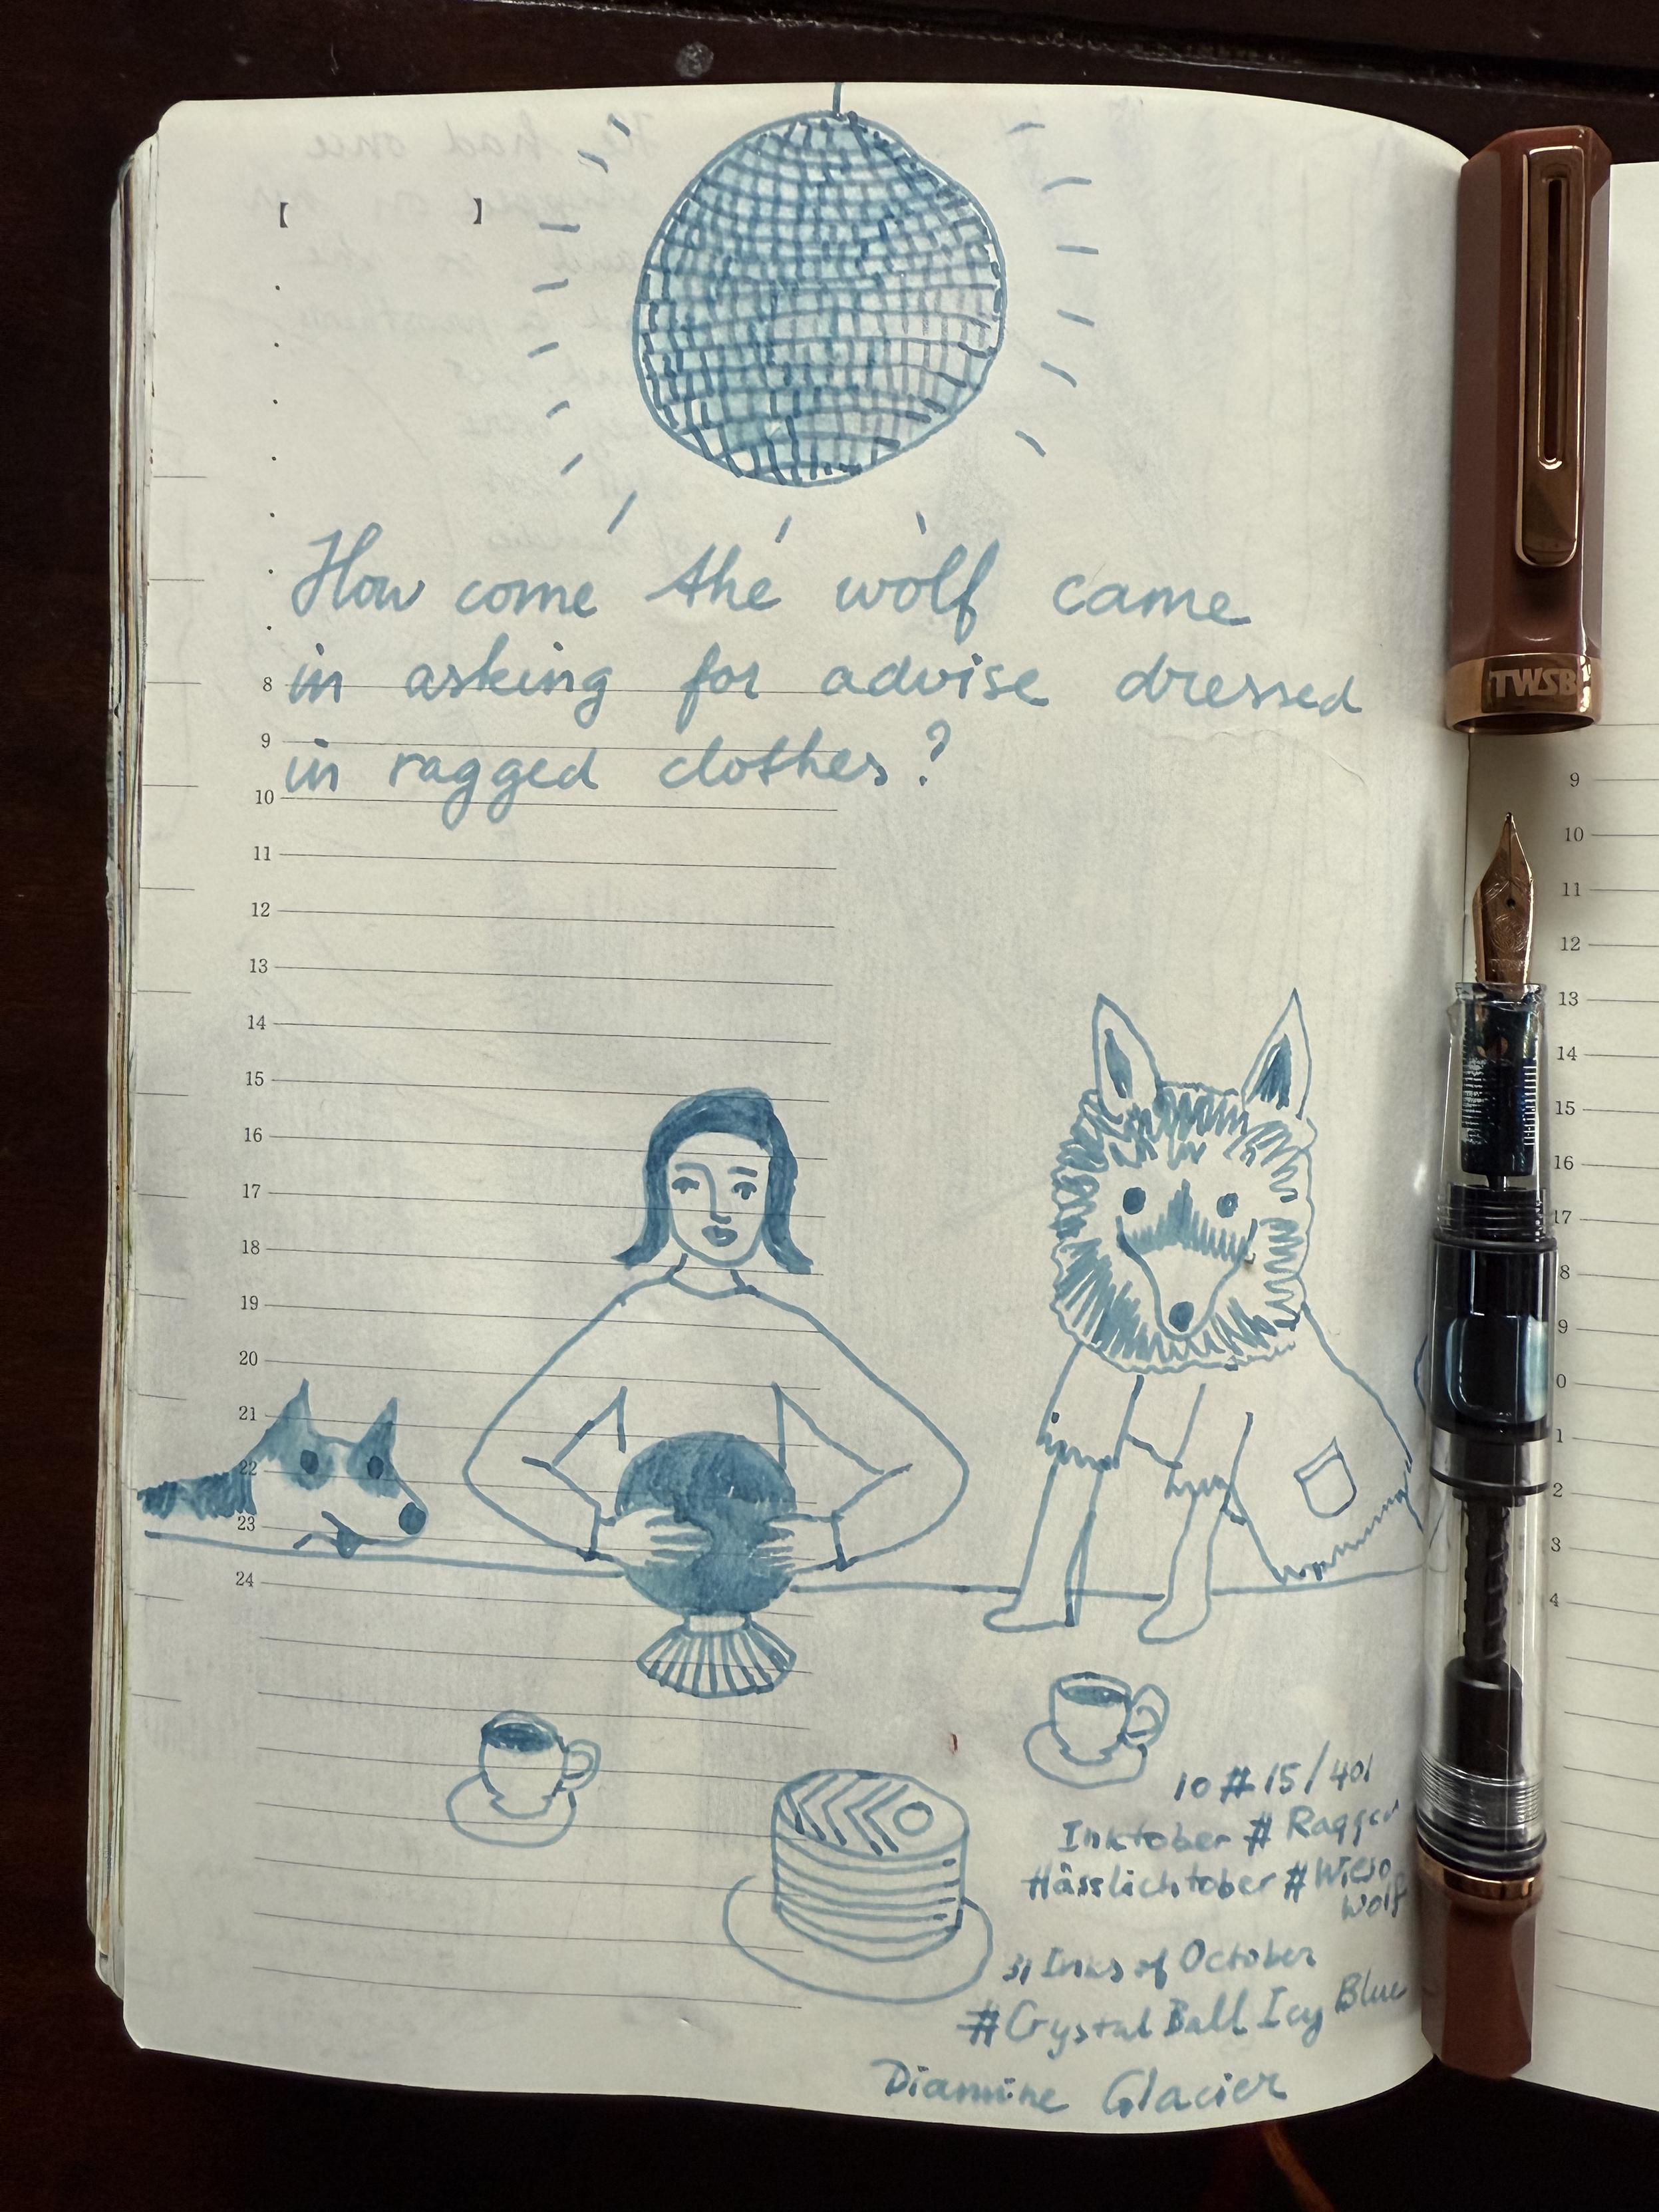 [ ]
How come the wolf came
in asking for advise dressed
in ragged clothes?
8
9
10
11
12
13
14
15
16
17
18
19
20
21
22
23
24
10 # 15/401
Inktober # Ragged
Hässlichtober # Wieso
Wolf
31 Inks of October
# Crystal Ball Icy Blue
Diamine Glacier
TWSBI
9
10
11
12
13
14
15
16
17
8
9
0
1
2
3
4